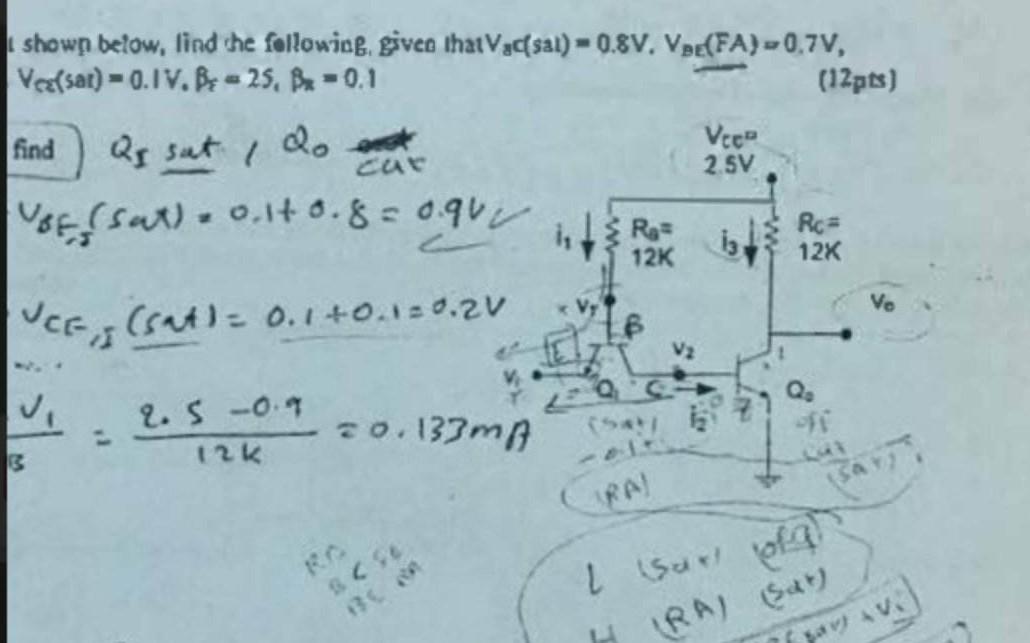 shown below, find the following, given that VBC(sat) = 0.8V, VBE(FA) = 0.7V,
VCE(sat) = 0.1V, βF = 25, βR = 0.1 (12pts)
find QI sat / Qo cut
VBE,I (sat) = 0.1 + 0.8 = 0.9V
VCE,I (sat) = 0.1 + 0.1 = 0.2V
V1 = 2.5 - 0.9 = 0.133mA
B 12K
VCC=
2.5V
i1 RB= i3 RC=
12K 12K
V1 Vo
B
E
V2
QI C i2 Qo
(sat) off
cut
(RA) (sat)
L (sat) (off)
H (RA) (sat)